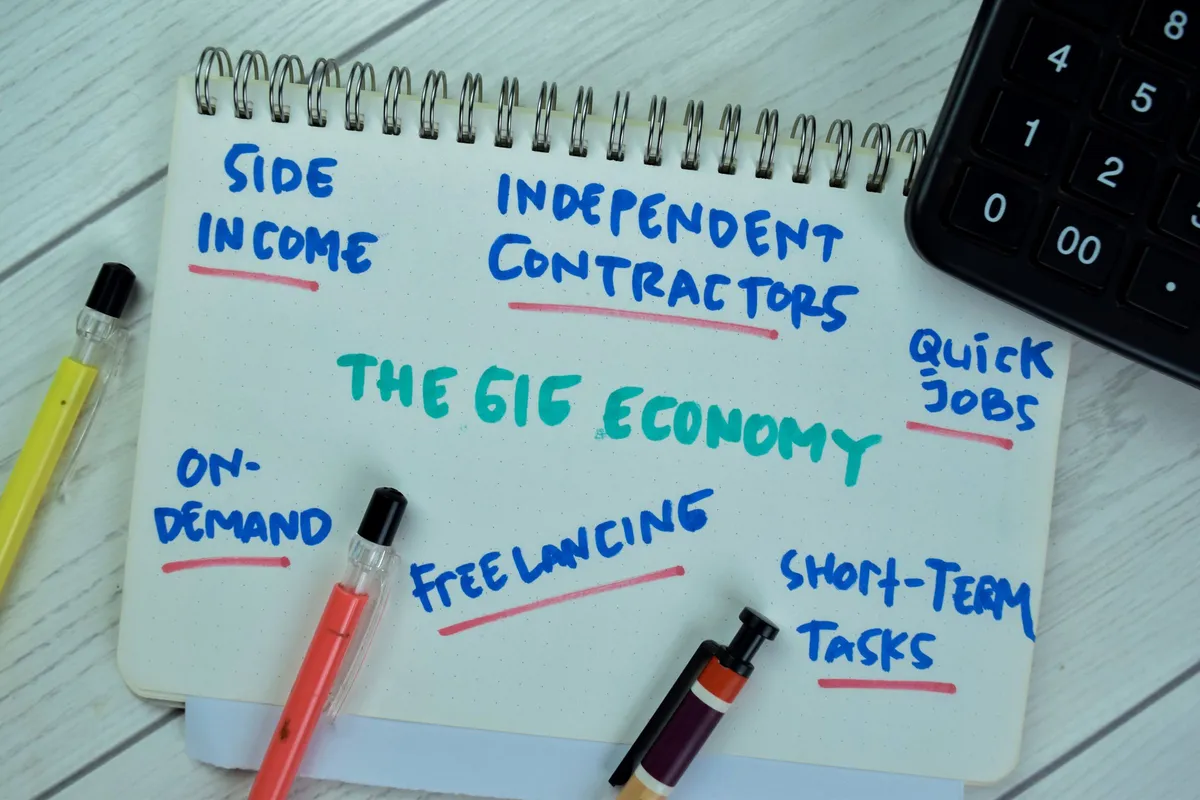 SIDE
INCOME
INDEPENDENT
CONTRACTORS
QUicK
JOBS
THE GIG ECONOMY
ON-
DEMAND
FREELANCING
SHORt-TERM
TASKS
8
4
5
1
2
0
00
.